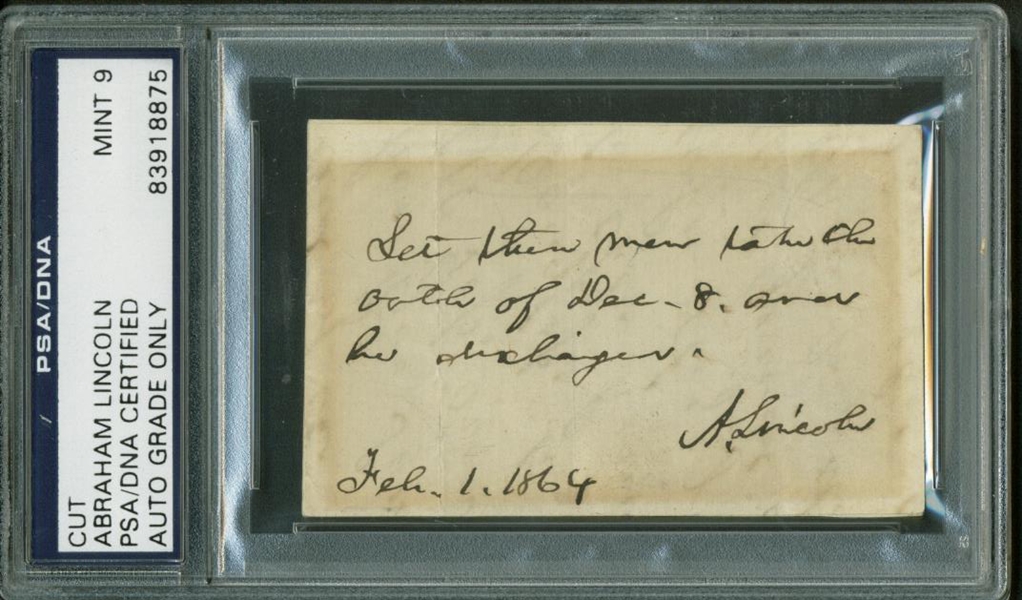 PSA/DNA
CUT MINT 9
ABRAHAM LINCOLN
PSA/DNA CERTIFIED
AUTO GRADE ONLY 83918875
Let these men take the
oath of Dec. 8. and
be discharged.
A. Lincoln
Feb. 1. 1864